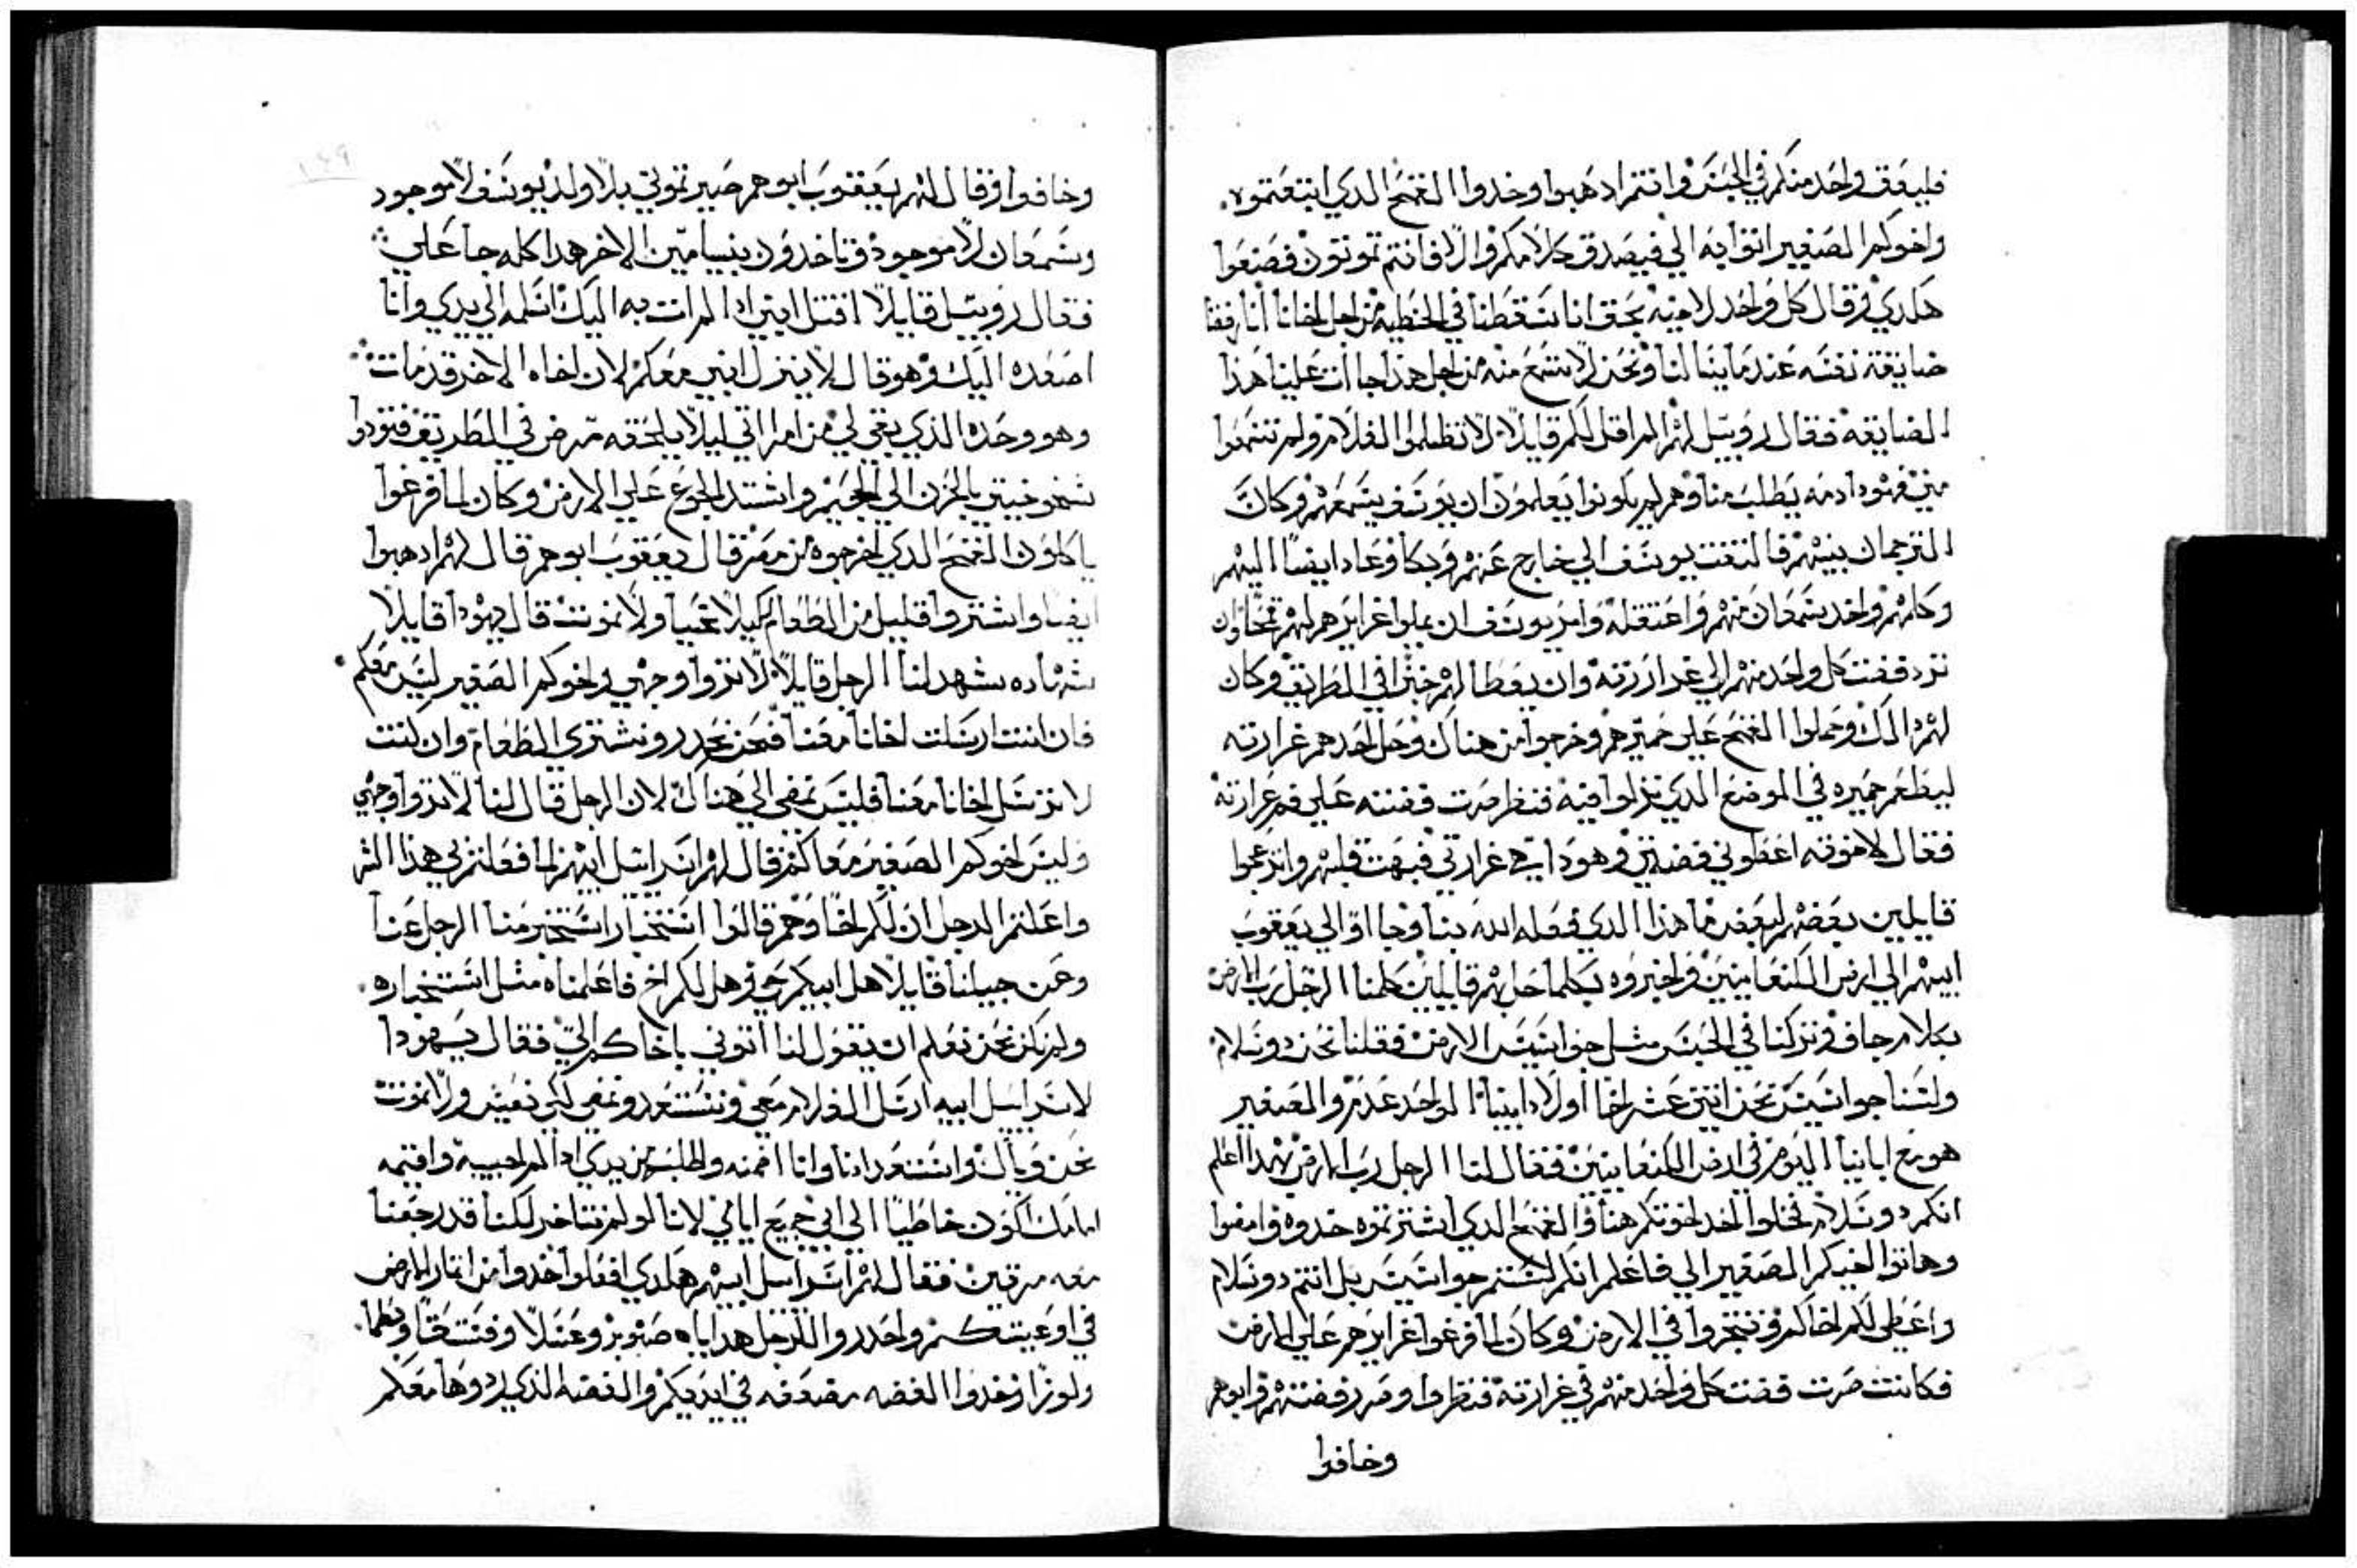 فليعق واحد منكم في الحبس وانتم ادهبوا وخدوا القمح الدي ابتعتموه
واخوكم الصغير اتوا به الي فيصدق كلامكم والا فانتم تموتون فصنعوا
هكدي وقال كل واحد لاخيه بحق اننا تسقطنا في الخطية من اجل اخانا اننا رفضنا
ضايقة نفسه عندما يسالنا ونحن لا نسمع منه من اجل هدا جاات علينا هدا
الضايقة فقال روبيل لهم الم اقل لكم قايلا لا تظلموا الغلام ولم تسمعوا
مني فهودا دمه يطلب منا وهم لم يكونوا يعلمون ان يوسف يسمعهم وكان
الترجمان بينهم فالتفت يوسف الي خارج عنهم وبكا وعاد ايضا اليهم
وكلمهم واخد شمعان منهم واعتقله وامر يوسف ان يملوا غرايرهم لهم قمحا وان
ترد فضت كل واحد منهم الي غرارته وان يعطا لهم خبزا في الطريق وكان
لهم دالك وحملوا القمح علي حميرهم وخرجوا من هناك وحل احدهم غرارته
ليطعم حميره في الموضع الدي نزلوا فيه فنظر صرت فضته علي فم غرارته
فقال لاخوته اعطوني فضتي وهودا هي غرارتي فبهت قلبهم وانزعجوا
قايلين بعضهم لبعض ما هدا الدي فعله الله بنا وجااوا الي يعقوب
ابيهم الي ارض الكنعانيين واخبروه بكلما حل بهم قايلين كلمنا الرجل رب الارض
بكلام جاف وتركنا في الحبس مثل جواسيس الارض فقلنا نحن دو سلام
ولسنا جواسيس نحن اتني عشر اخا اولاد ابينا الواحد عدم والصغير
هو مع ابانا اليوم في ارض الكنعانيين فقال لنا الرجل رب الارض بهدا اعلم
انكم دو سلام تخلوا احد اخوتكم هنا والقمح الدي اشتريتموه خدوه وامضوا
وهاتوا اخيكم الصغير الي فاعلم انكم لستم جواسيس بل انتم دو سلام
واعطي لكم اخاكم وتتجروا في الارض وكان لما فرغوا غرايرهم علي الارض
فكانت صرت فضت كل واحد منهم في غرارته فنظروا صرر فضتهم وابوهم
وخافوا
وخافوا وقال لهم يعقوب ابوهم صيرتموني بلا ولد يوسف لا موجود
وشمعان لا موجود وتاخدون بنيامين الاخر هدا كله جا علي
فقال روبيل قايلا اقتل ابني ادا لم ات به اليك اسلمه الي يدي وانا
اصعده اليك وهو قال لا ينزل ابني معكم لان اخاه الاخر قد مات
وهو وحده الذي بقي لي من امراتي ليلا يلحقه مرض في الطريق فتودوا
شيخوخيتي بالحزن الي الجحيم واشتد الجوع علي الارض وكان لما فرغوا
ياكلون القمح الدي اخرجوه من مصر قال يعقوب ابوهم قال لهم ادهبوا
ايضا واشتروا قليل من الطعام لكيلا نحيا ولا نموت قال يهودا قايلا
شهاده شهد لنا الرجل قايلا لا تروا وجهي واخوكم الصغير ليس معكم
فان انت ارسلت اخانا معنا فنحن نحدر ونشتري الطعام وان كنت
لا ترسل اخانا معنا فليس نمضي الي هناك لان الرجل قال لنا لا تروا وجهي
وليس اخوكم الصغير معاكم قال لهم اسراييل ابيهم لما فعلتم بي هذا الشر
واعلمتم الرجل ان لكم اخا وهم قالوا استخبار استخبر منا الرجل عنا
وعن جيلنا قايلا هل ابيكم حي وهل لكم اخ فاعلمناه مثل استخباره
ولم نكن نحن نعلم ان يقول لنا اتوني باخاكم الي فقال يهودا
لاسراييل ابيه ارسل الغلام معي ونستعد ونمضي لكي نعيش ولا نموت
نحن وياك واستعدادنا وانا اضمنه واطلبه من يدي ادا لم اجيبه واقيمه
امامك اكون خاطيا الي ابي جميع ايامي لاننا لو لم نتاخر لكنا قد رجعنا
معه مرتين فقال لهم اسراييل ابيهم هكدي افعلوا خدوا من اتمار الارض
في اوعيتكم واحدروا للرجل هداياه صنوبر وعسلا وفستقا وبطما
ولوزا وخدوا الفضه مضعفه في ايديكم والفضه الذي ردوها معكم